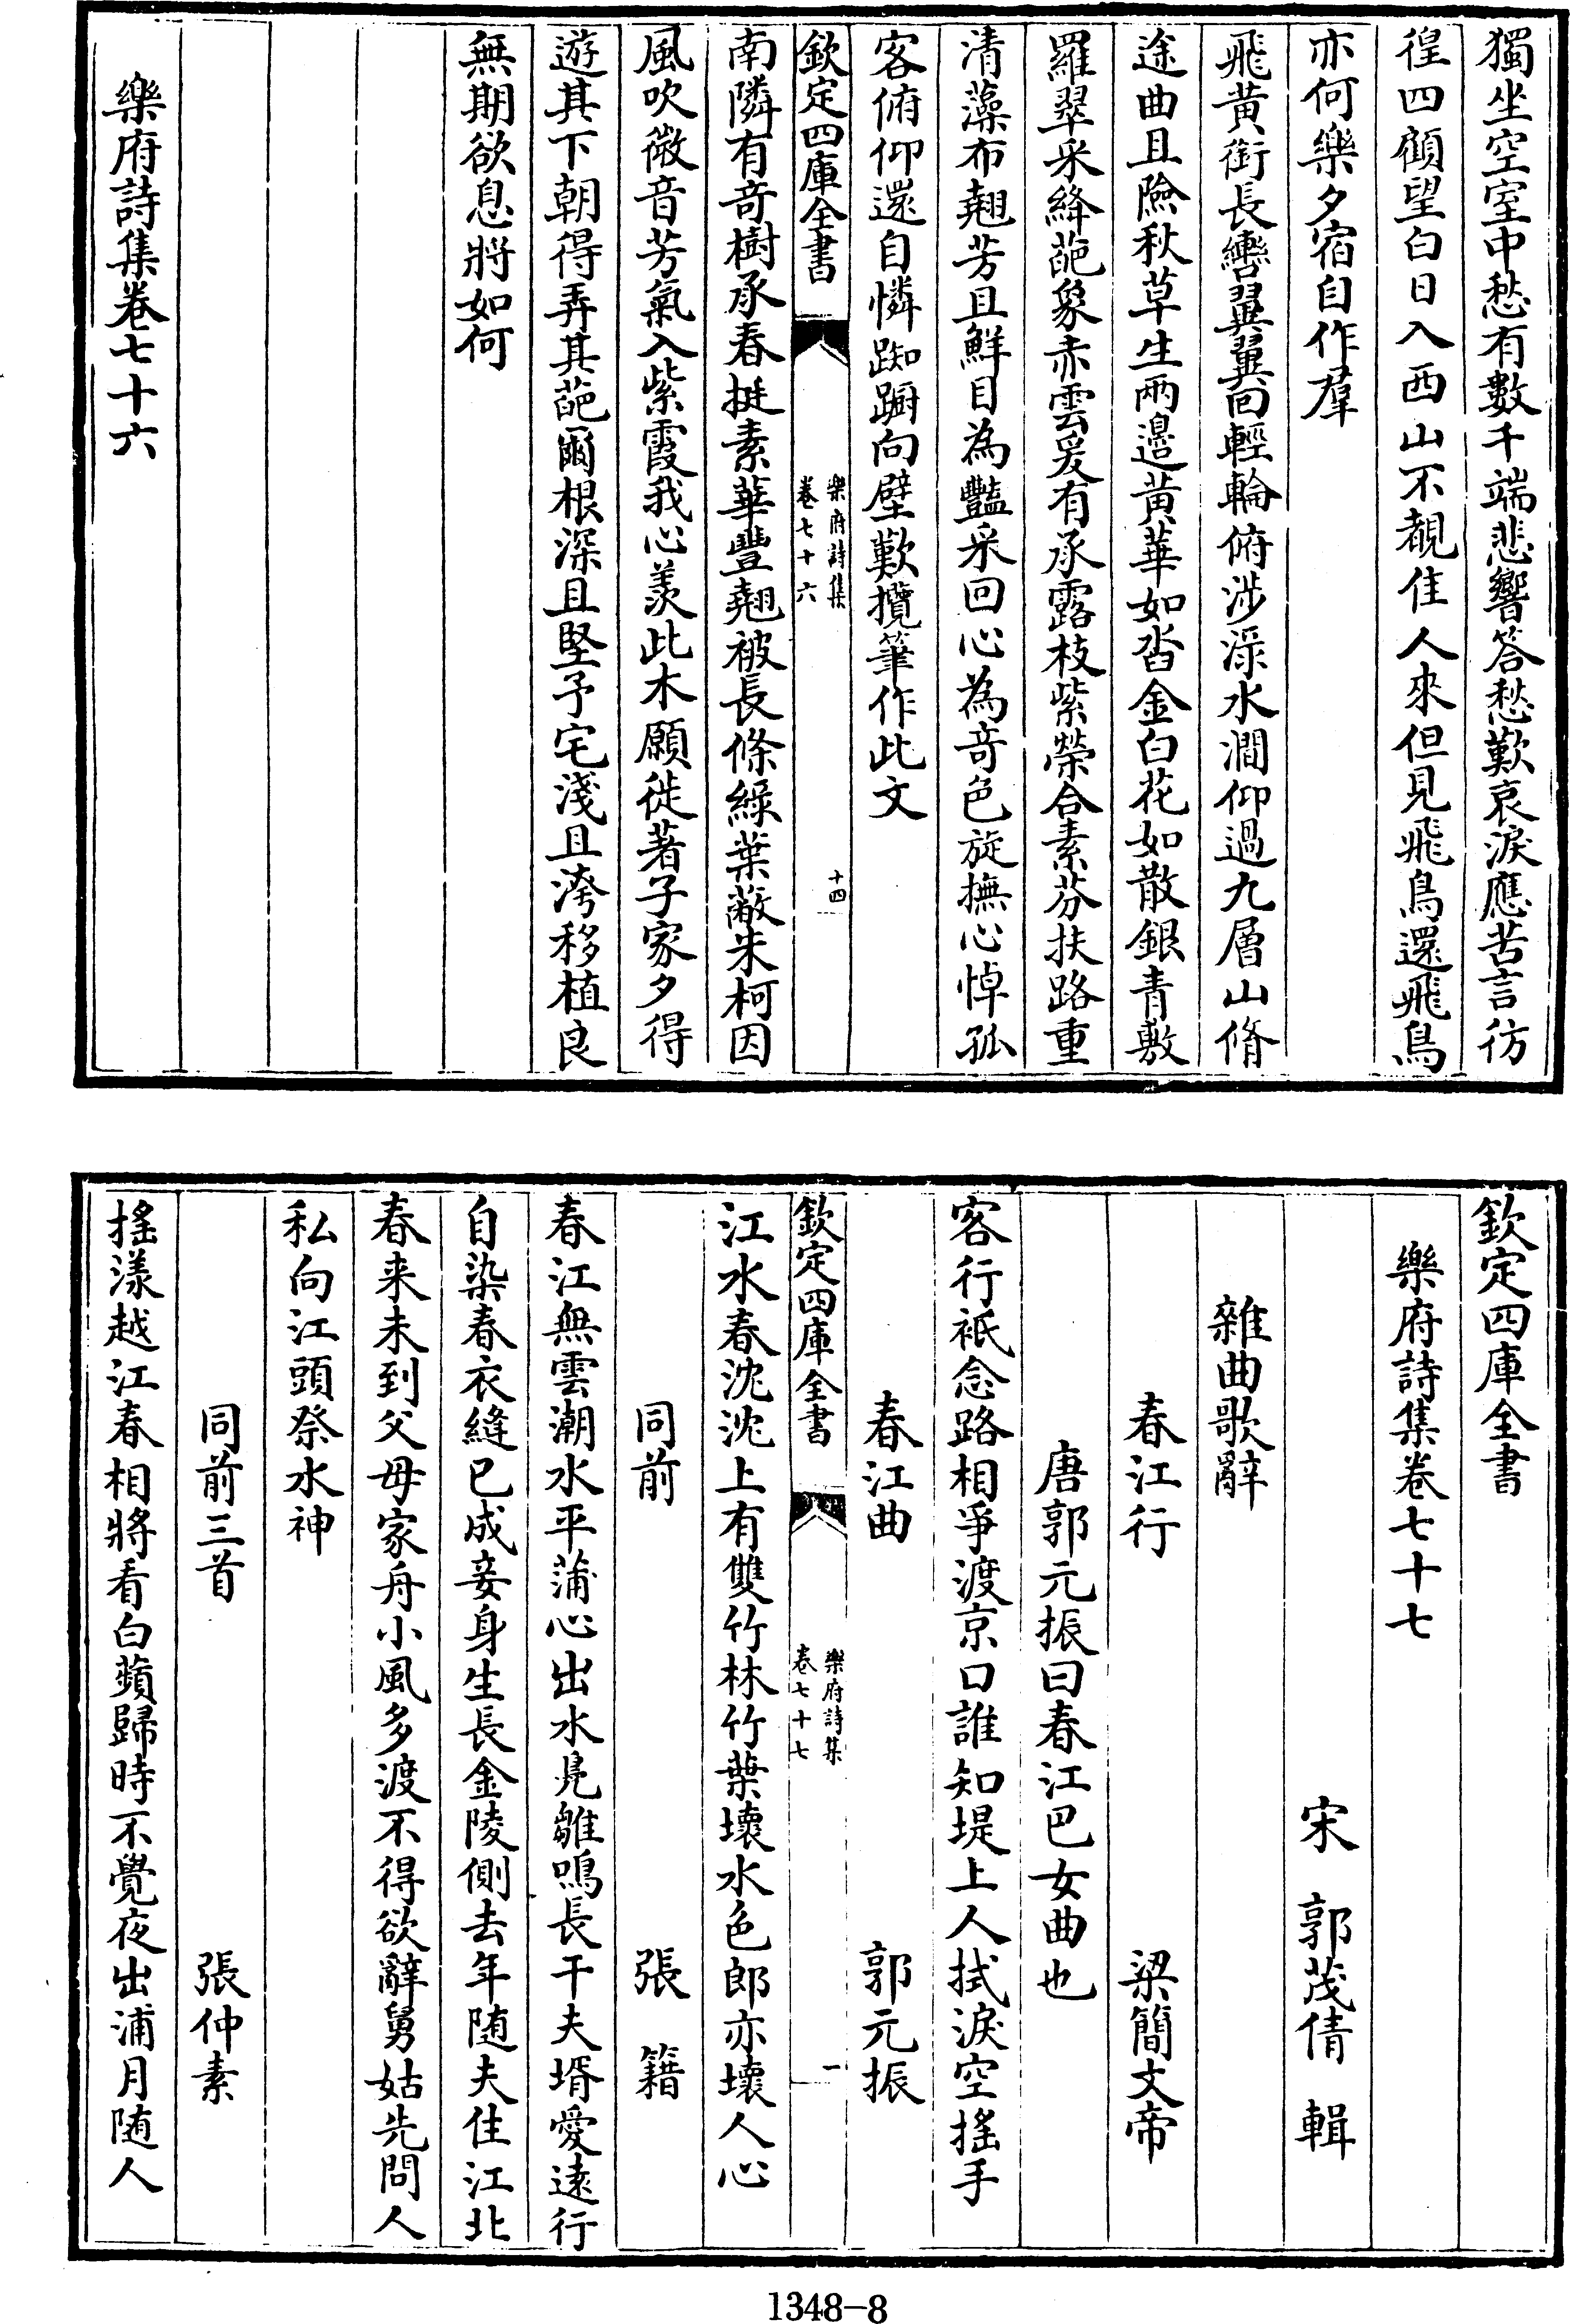 獨坐空室中愁有數千端悲響答愁歎哀淚應苦言彷
徨四顧望白日入西山不覩佳人來但見飛鳥還飛鳥
亦何樂夕宿自作羣
飛黄銜長轡翼翼回輕輪俯涉渌水澗仰過九層山脩
途曲且險秋草生兩邊黄華如沓金白花如散銀青敷
羅翠采絳葩象赤雲爰有承露枝紫榮合素芬扶路重
清藻布翹芳且鮮目為豔采回心為奇色旋撫心悼孤
客俯仰還自憐踟躕向壁歎攬筆作此文
欽定四庫全書
樂府詩集
卷七十六
十四
南隣有奇樹承春挺素華豐翹被長條綠葉蔽朱柯因
風吹微音芳氣入紫霞我心羨此木願徙著子家夕得
遊其下朝得弄其葩爾根深且堅予宅淺且洿移植良
無期欲息將如何
樂府詩集卷七十六
欽定四庫全書
樂府詩集卷七十七
宋 郭茂倩 輯
雜曲歌辭
春江行 梁簡文帝
唐郭元振曰春江巴女曲也
客行袛念路相爭渡京口誰知堤上人拭淚空搖手
春江曲 郭元振
欽定四庫全書
樂府詩集
卷七十七
一
江水春沈沈上有雙竹林竹葉壞水色郎亦壞人心
同前 張籍
春江無雲潮水平蒲心出水鳧雛鳴長干夫壻愛遠行
自染春衣縫已成妾身生長金陵側去年随夫住江北
春来未到父母家舟小風多渡不得欲辭舅姑先問人
私向江頭祭水神
同前三首 張仲素
搖漾越江春相將看白蘋歸時不覺夜出浦月随人
1348-8